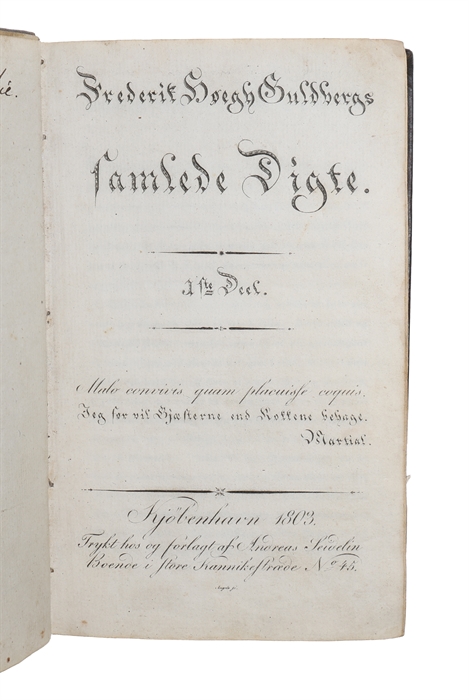 Frederik Høegh Guldbergs
samlede Digte.
1ste Deel.
Malo convivis quam placuisse coquis.
Jeg før vil Gjæsterne end Kokkene behage.
Martial.
Kjöbenhavn 1803.
Trykt hos og forlagt af Andreas Seidelin
Boende i store Kannikestræde No 45.